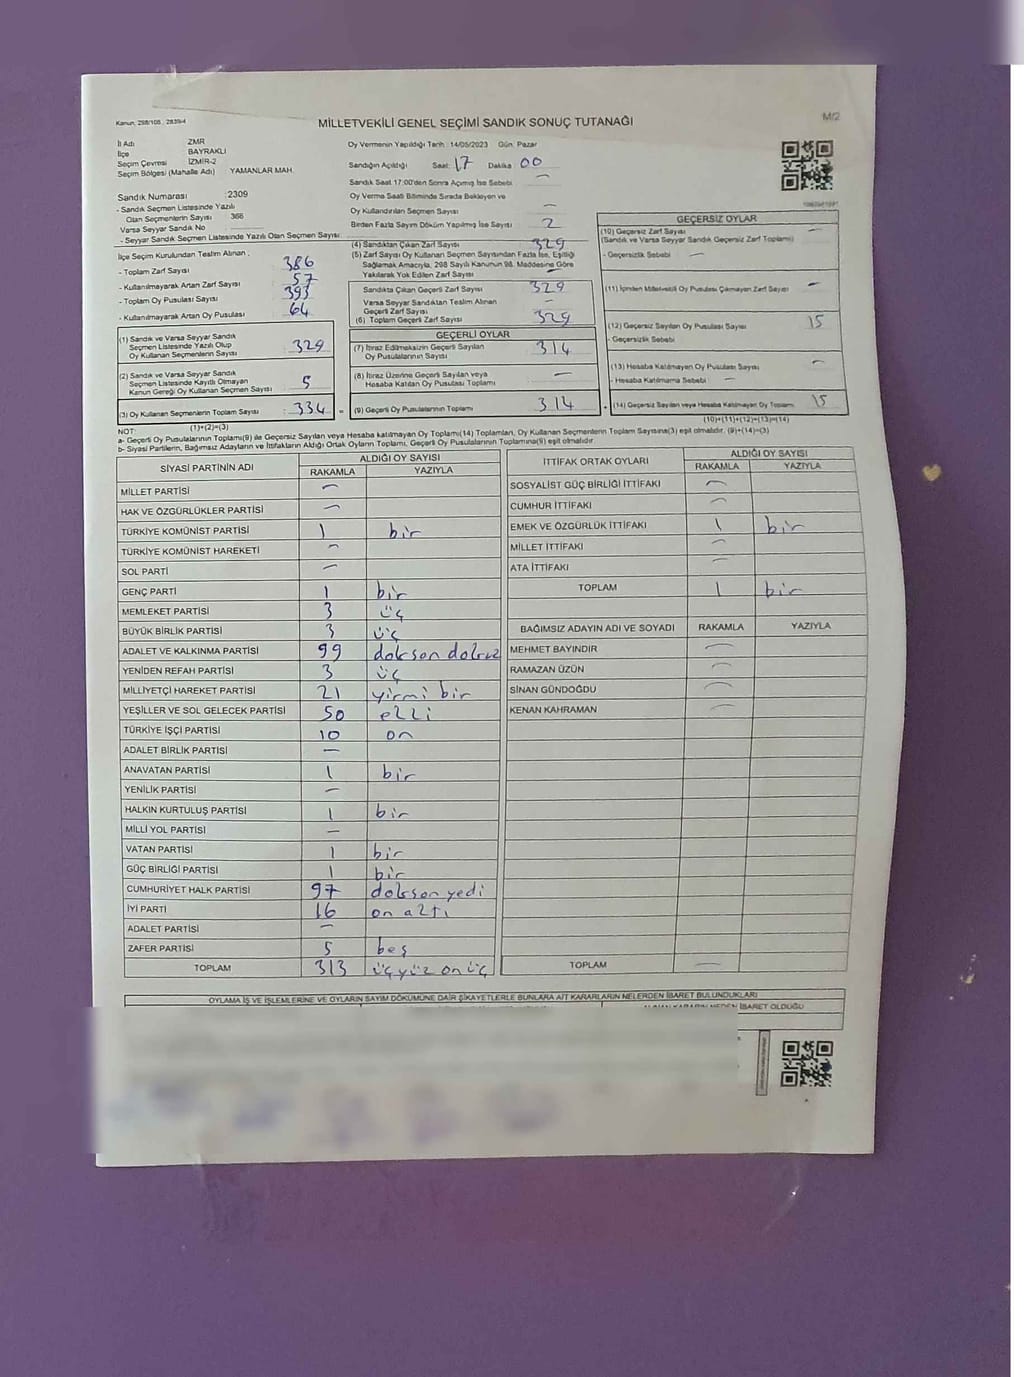 Kanun, 298/105 , 2839/4
M/2
MİLLETVEKİLİ GENEL SEÇİMİ SANDIK SONUÇ TUTANAĞI
İl Adı
ZMR
İlçe
BAYRAKLI
Seçim Çevresi
İZMİR-2
Seçim Bölgesi (Mahalle Adı)
YAMANLAR MAH.
Sandık Numarası
:2309
- Sandık Seçmen Listesinde Yazılı
Olan Seçmenlerin Sayısı
366
Varsa Seyyar Sandık No
- Seyyar Sandık Seçmen Listesinde Yazılı Olan Seçmen Sayısı
Oy Vermenin Yapıldığı Tarih : 14/05/2023 Gün, Pazar
Sandığın Açıldığı Saat: 17 Dakika 00
Sandık Saat 17:00'den Sonra Açılmış İse Sebebi —
Oy Verme Saati Bitiminde Sırada Bekleyen ve
Oy Kullandırılan Seçmen Sayısı —
Birden Fazla Sayım Döküm Yapılmış İse Sayısı 2
İlçe Seçim Kurulundan Teslim Alınan ;
- Toplam Zarf Sayısı 386
- Kullanılmayarak Artan Zarf Sayısı 57
- Toplam Oy Pusulası Sayısı 393
- Kullanılmayarak Artan Oy Pusulası 64
(1) Sandık ve Varsa Seyyar Sandık
Seçmen Listesinde Yazılı Olup
Oy Kullanan Seçmenlerin Sayısı 329
(2) Sandık ve Varsa Seyyar Sandık
Seçmen Listesinde Kayıtlı Olmayan
Kanun Gereği Oy Kullanan Seçmen Sayısı 5
(3) Oy Kullanan Seçmenlerin Toplam Sayısı 334
(1)+(2)=(3)
(4) Sandıktan Çıkan Zarf Sayısı 329
(5) Zarf Sayısı Oy Kullanan Seçmen Sayısından Fazla İse, Eşitliği
Sağlamak Amacıyla, 298 Sayılı Kanunun 98. Maddesine Göre
Yakılarak Yok Edilen Zarf Sayısı —
Sandıkta Çıkan Geçerli Zarf Sayısı 329
Varsa Seyyar Sandıktan Teslim Alınan
Geçerli Zarf Sayısı —
(6) Toplam Geçerli Zarf Sayısı 329
GEÇERLİ OYLAR
(7) İtiraz Edilmeksizin Geçerli Sayılan
Oy Pusulalarının Sayısı 314
(8) İtiraz Üzerine Geçerli Sayılan veya
Hesaba Katılan Oy Pusulası Toplamı —
= (9) Geçerli Oy Pusulalarının Toplamı 314
GEÇERSİZ OYLAR
(10) Geçersiz Zarf Sayısı —
(Sandık ve Varsa Seyyar Sandık Geçersiz Zarf Toplamı)
- Geçersizlik Sebebi —
(11) İçinden Milletvekili Oy Pusulası Çıkmayan Zarf Sayısı —
(12) Geçersiz Sayılan Oy Pusulası Sayısı 15
- Geçersizlik Sebebi
(13) Hesaba Katılmayan Oy Pusulası Sayısı —
- Hesaba Katılmama Sebebi —
+ (14) Geçersiz Sayılan veya Hesaba Katılmayan Oy Toplamı 15
(10)+(11)+(12)+(13)=(14)
NOT:
a- Geçerli Oy Pusulalarının Toplamı(9) ile Geçersiz Sayılan veya Hesaba katılmayan Oy Toplamı(14) Toplamları, Oy Kullanan Seçmenlerin Toplam Sayısına(3) eşit olmalıdır. (9)+(14)=(3)
b- Siyasi Partilerin, Bağımsız Adayların ve İttifakların Aldığı Ortak Oyların Toplamı, Geçerli Oy Pusulalarının Toplamına(9) eşit olmalıdır.
SİYASİ PARTİNİN ADI
ALDIĞI OY SAYISI
RAKAMLA YAZIYLA
MİLLET PARTİSİ —
HAK VE ÖZGÜRLÜKLER PARTİSİ —
TÜRKİYE KOMÜNİST PARTİSİ 1 bir
TÜRKİYE KOMÜNİST HAREKETİ —
SOL PARTİ —
GENÇ PARTİ 1 bir
MEMLEKET PARTİSİ 3 üç
BÜYÜK BİRLİK PARTİSİ 3 üç
ADALET VE KALKINMA PARTİSİ 99 doksan dokuz
YENİDEN REFAH PARTİSİ 3 üç
MİLLİYETÇİ HAREKET PARTİSİ 21 yirmi bir
YEŞİLLER VE SOL GELECEK PARTİSİ 50 elli
TÜRKİYE İŞÇİ PARTİSİ 10 on
ADALET BİRLİK PARTİSİ —
ANAVATAN PARTİSİ 1 bir
YENİLİK PARTİSİ —
HALKIN KURTULUŞ PARTİSİ 1 bir
MİLLİ YOL PARTİSİ —
VATAN PARTİSİ 1 bir
GÜÇ BİRLİĞİ PARTİSİ 1 bir
CUMHURİYET HALK PARTİSİ 97 doksan yedi
İYİ PARTİ 16 on altı
ADALET PARTİSİ —
ZAFER PARTİSİ 5 beş
TOPLAM 313 üçyüz on üç
İTTİFAK ORTAK OYLARI
ALDIĞI OY SAYISI
RAKAMLA YAZIYLA
SOSYALİST GÜÇ BİRLİĞİ İTTİFAKI —
CUMHUR İTTİFAKI —
EMEK VE ÖZGÜRLÜK İTTİFAKI 1 bir
MİLLET İTTİFAKI —
ATA İTTİFAKI —
TOPLAM 1 bir
BAĞIMSIZ ADAYIN ADI VE SOYADI RAKAMLA YAZIYLA
MEHMET BAYINDIR —
RAMAZAN ÜZÜN —
SİNAN GÜNDOĞDU —
KENAN KAHRAMAN —
TOPLAM —
OYLAMA İŞ VE İŞLEMLERİNE VE OYLARIN SAYIM DÖKÜMÜNE DAİR ŞİKAYETLERLE BUNLARA AİT KARARLARIN NELERDEN İBARET BULUNDUKLARI
ALINAN KARARIN NEDEN İBARET OLDUĞU